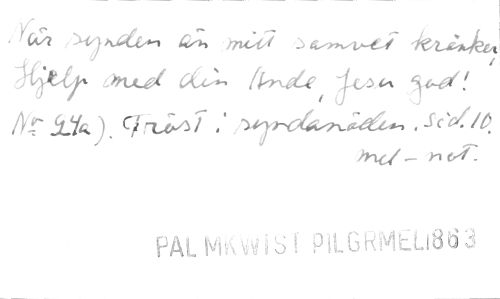 När synden än mitt samvet kränker,
Hjelp med din Ande, Jesu god!
No 94a). Tröst i syndanöden. Sid. 10.
mel-not.
PALMKWIST PILGRMEL1863